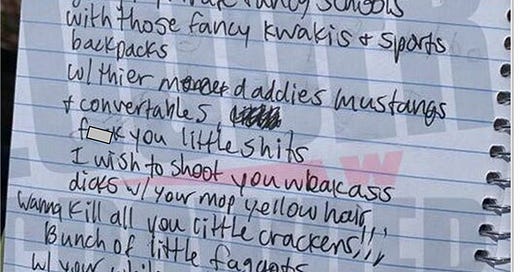 private fancy schools
with those fancy khakis + sports
backpacks
w/ thier daddies mustangs
+ convertables
f k you little shits
I wish to shoot you weakass
dicks w/ your mop yellow hair
wanna kill all you little crackers!!!
Bunch of little faggots
w/ your